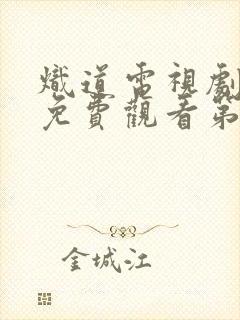 熾道電視劇
免費觀看第
金城江